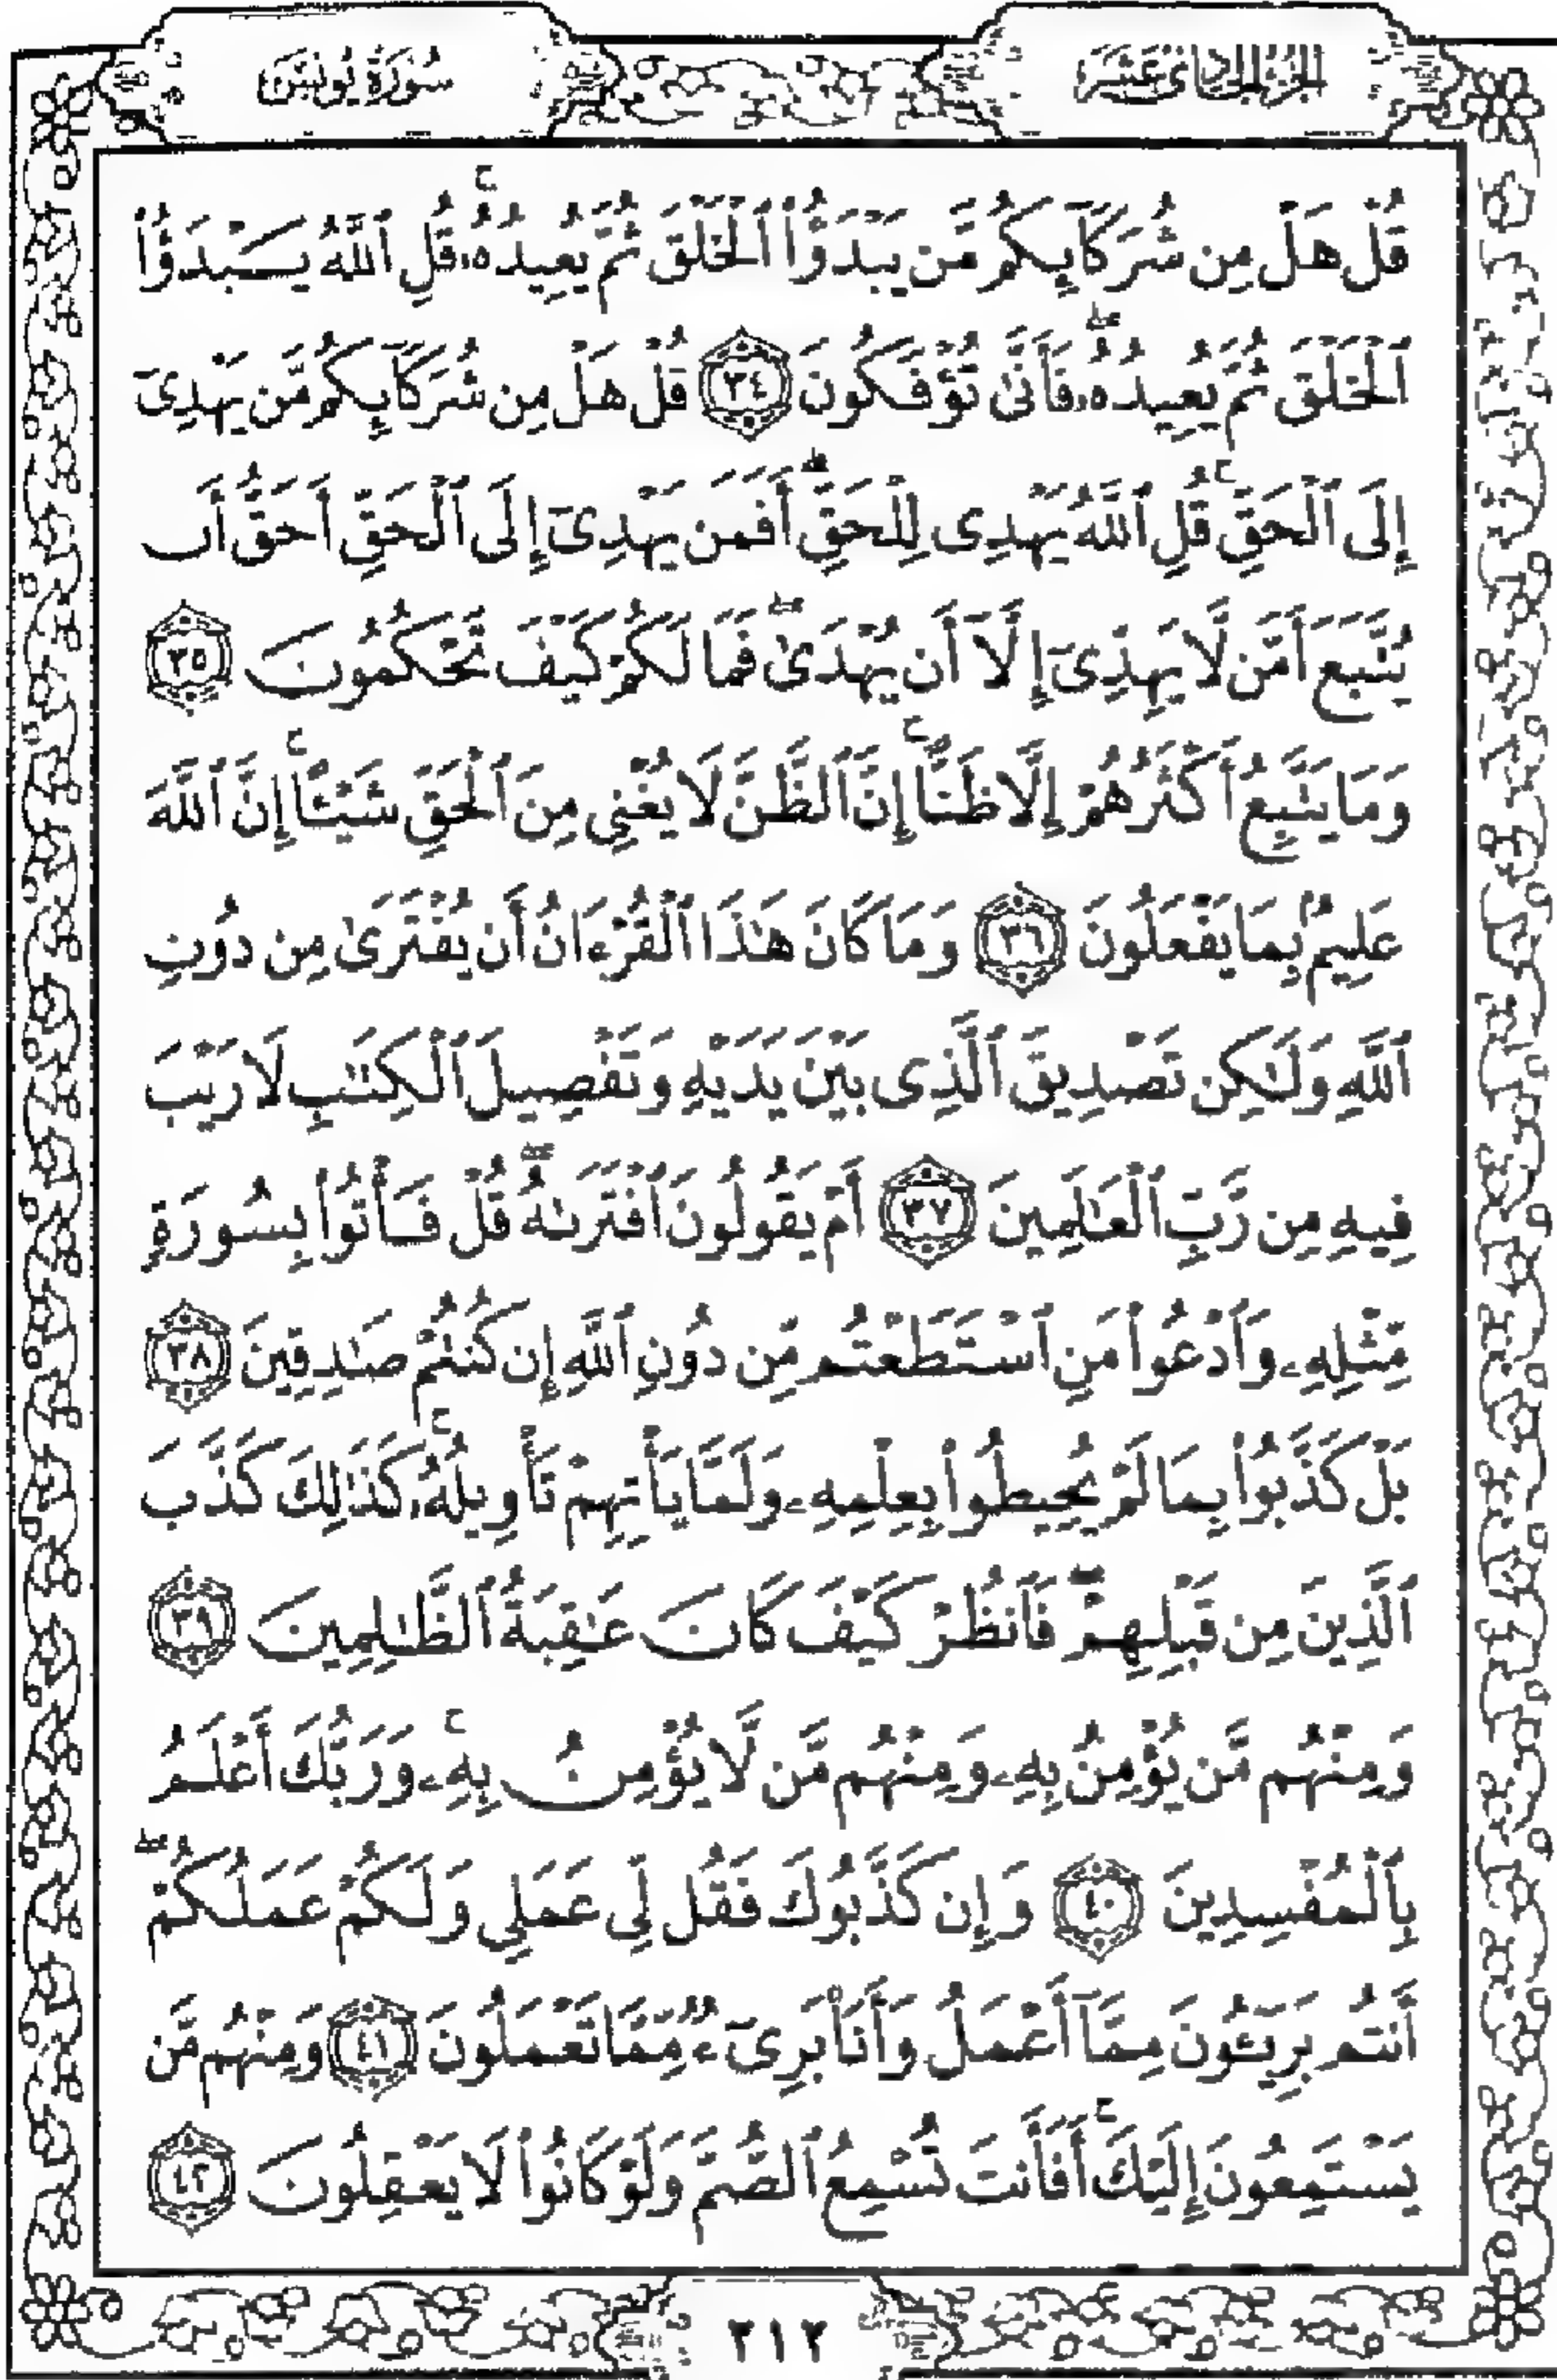 الجزء الحادي عشر
سورة يونس
قُلْ هَلْ مِن شُرَكَآئِكُم مَّن يَبْدَؤُا۟ ٱلْخَلْقَ ثُمَّ يُعِيدُهُۥ ۚ قُلِ ٱللَّهُ يَبْدَؤُا۟
ٱلْخَلْقَ ثُمَّ يُعِيدُهُۥ ۖ فَأَنَّىٰ تُؤْفَكُونَ ﴿٣٤﴾ قُلْ هَلْ مِن شُرَكَآئِكُم مَّن يَهْدِىٓ
إِلَى ٱلْحَقِّ ۚ قُلِ ٱللَّهُ يَهْدِى لِلْحَقِّ ۗ أَفَمَن يَهْدِىٓ إِلَى ٱلْحَقِّ أَحَقُّ أَن
يُتَّبَعَ أَمَّن لَّا يَهِدِّىٓ إِلَّآ أَن يُهْدَىٰ ۖ فَمَا لَكُمْ كَيْفَ تَحْكُمُونَ ﴿٣٥﴾
وَمَا يَتَّبِعُ أَكْثَرُهُمْ إِلَّا ظَنًّا ۚ إِنَّ ٱلظَّنَّ لَا يُغْنِى مِنَ ٱلْحَقِّ شَيْـًٔا ۚ إِنَّ ٱللَّهَ
عَلِيمٌۢ بِمَا يَفْعَلُونَ ﴿٣٦﴾ وَمَا كَانَ هَـٰذَا ٱلْقُرْءَانُ أَن يُفْتَرَىٰ مِن دُونِ
ٱللَّهِ وَلَـٰكِن تَصْدِيقَ ٱلَّذِى بَيْنَ يَدَيْهِ وَتَفْصِيلَ ٱلْكِتَـٰبِ لَا رَيْبَ
فِيهِ مِن رَّبِّ ٱلْعَـٰلَمِينَ ﴿٣٧﴾ أَمْ يَقُولُونَ ٱفْتَرَىٰهُ ۖ قُلْ فَأْتُوا۟ بِسُورَةٍ
مِّثْلِهِۦ وَٱدْعُوا۟ مَنِ ٱسْتَطَعْتُم مِّن دُونِ ٱللَّهِ إِن كُنتُمْ صَـٰدِقِينَ ﴿٣٨﴾
بَلْ كَذَّبُوا۟ بِمَا لَمْ يُحِيطُوا۟ بِعِلْمِهِۦ وَلَمَّا يَأْتِهِمْ تَأْوِيلُهُۥ ۚ كَذَٰلِكَ كَذَّبَ
ٱلَّذِينَ مِن قَبْلِهِمْ ۖ فَٱنظُرْ كَيْفَ كَانَ عَـٰقِبَةُ ٱلظَّـٰلِمِينَ ﴿٣٩﴾
وَمِنْهُم مَّن يُؤْمِنُ بِهِۦ وَمِنْهُم مَّن لَّا يُؤْمِنُ بِهِۦ ۚ وَرَبُّكَ أَعْلَمُ
بِٱلْمُفْسِدِينَ ﴿٤٠﴾ وَإِن كَذَّبُوكَ فَقُل لِّى عَمَلِى وَلَكُمْ عَمَلُكُمْ ۖ
أَنتُم بَرِيٓـُٔونَ مِمَّآ أَعْمَلُ وَأَنَا۠ بَرِىٓءٌ مِّمَّا تَعْمَلُونَ ﴿٤١﴾ وَمِنْهُم مَّن
يَسْتَمِعُونَ إِلَيْكَ ۚ أَفَأَنتَ تُسْمِعُ ٱلصُّمَّ وَلَوْ كَانُوا۟ لَا يَعْقِلُونَ ﴿٤٢﴾
٢١٣